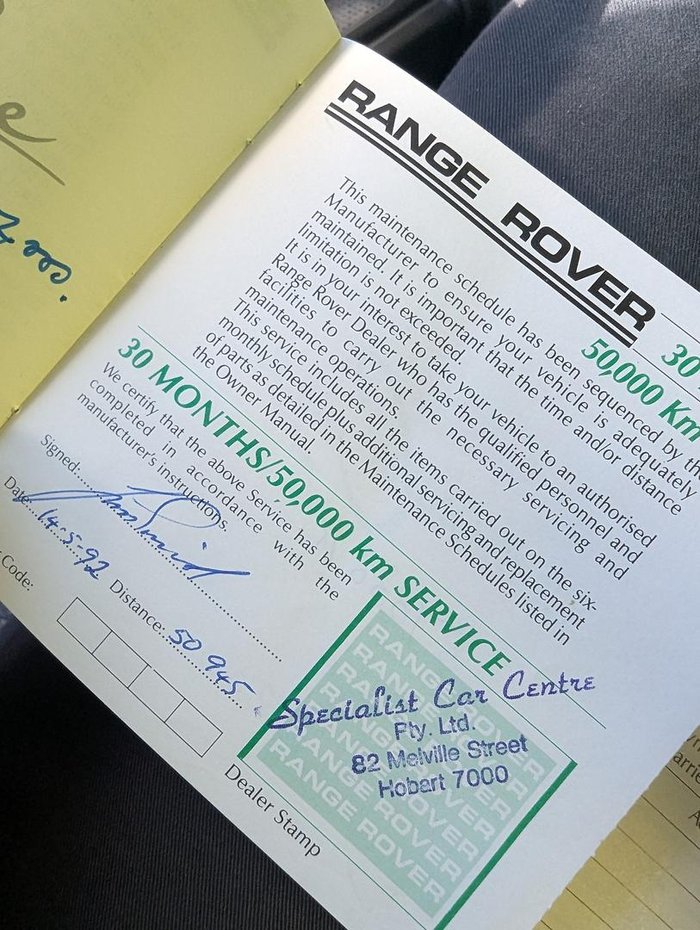 RANGE ROVER
50,000 Km
30
This maintenance schedule has been sequenced by the
Manufacturer to ensure your vehicle is adequately
maintained. It is important that the time and/or distance
limitation is not exceeded.
It is in your interest to take your vehicle to an authorised
Range Rover Dealer who has the qualified personnel and
facilities to carry out the necessary servicing and
maintenance operations.
This service includes all the items carried out on the six-
monthly schedule plus additional servicing and replacement
of parts as detailed in the Maintenance Schedules listed in
the Owner Manual.
30 MONTHS/50,000 km SERVICE
We certify that the above Service has been
completed in accordance with the
manufacturer's instructions.
Signed:
Date: 14-5-92
Distance: 50945
Code:
Dealer Stamp
Specialist Car Centre
Pty. Ltd.
82 Melville Street
Hobart 7000
RANGE ROVER
RANGE ROVER
RANGE ROVER
RANGE ROVER
RANGE ROVER